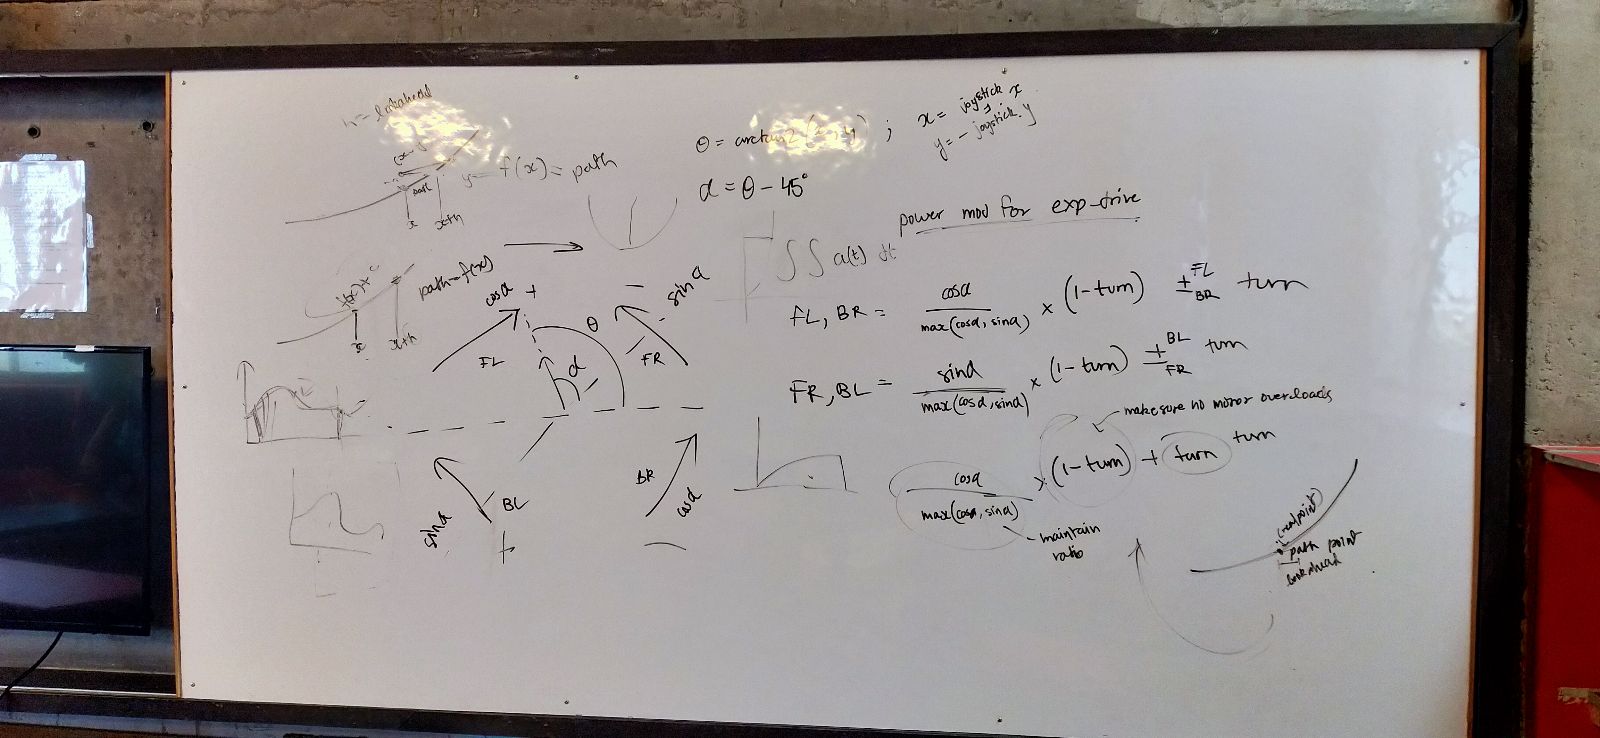 h = lookahead
y = f(x) = path
x
x+h
θ = arctan2(x, y) ; x = joystick.x
y = - joystick.y
α = θ - 45°
power mod for exp-drive
∫∫ a(t) dt
path = f(x)
f(x) + c
x
x+h
cosα +
FL
θ
α
- sinα
FR
sinα
BL
+
BR
cosα
-
FL, BR = cosα / max(cosα, sinα) × (1-turn) ± FL BR turn
FR, BL = sinα / max(cosα, sinα) × (1-turn) ± BL FR turn
make sure no motor overloads
cosα / max(cosα, sinα) × (1-turn) + turn turn
maintain
ratio
path point
lookahead